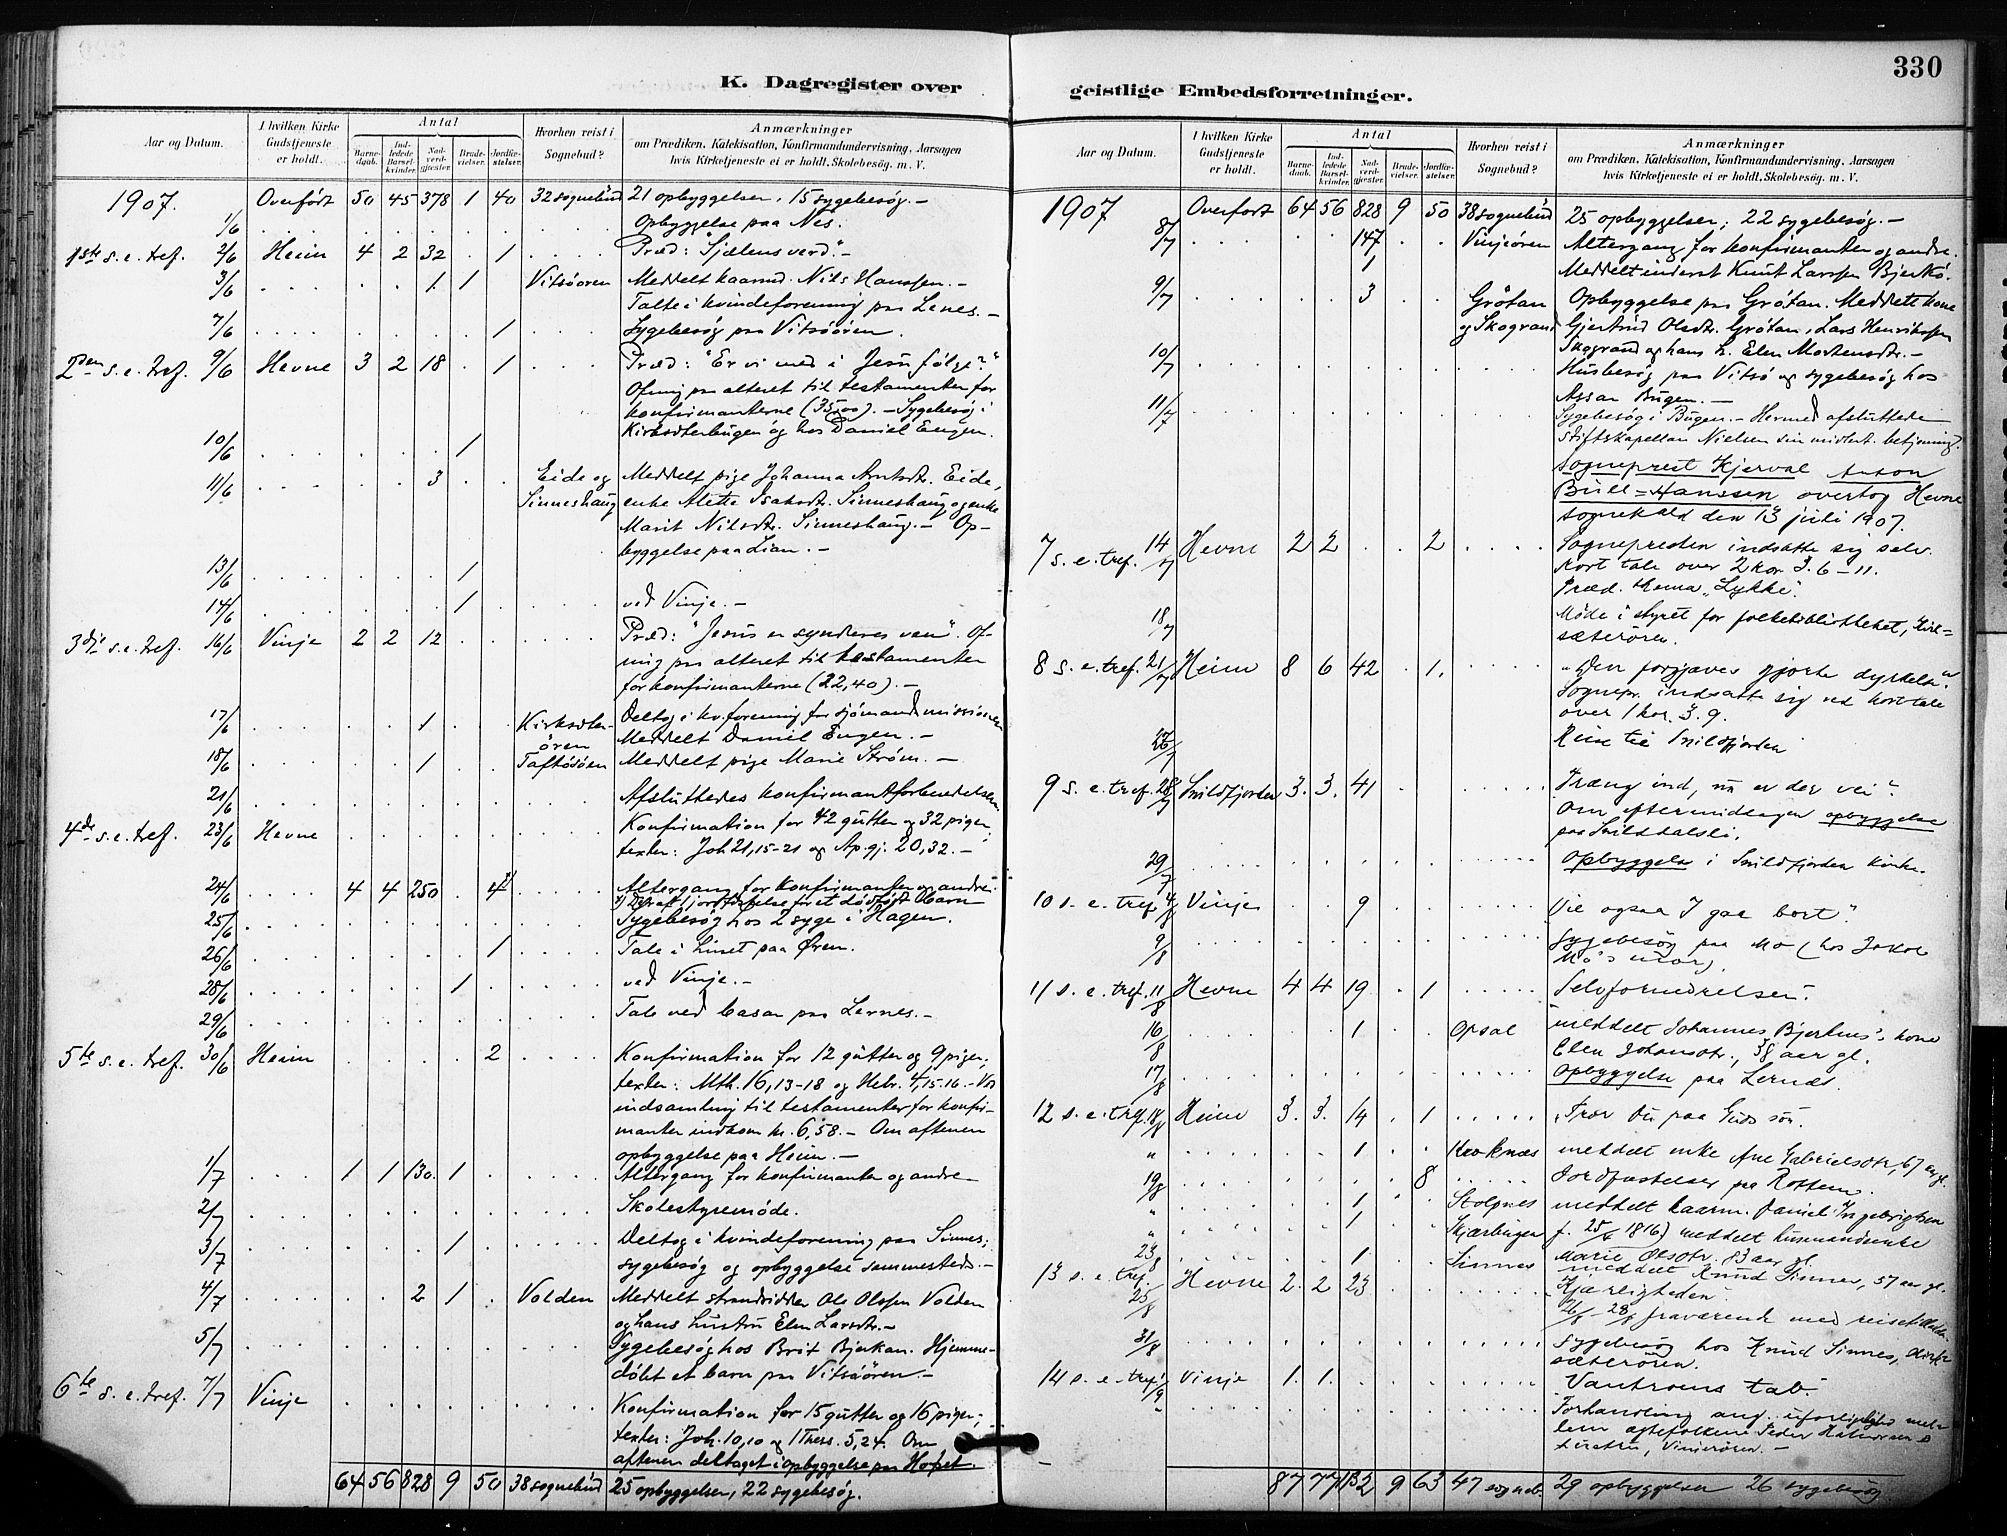 330
K. Dagregister over
geistlige Embedsforretninger.
Aar og Datum.
I hvilken Kirke Gudstjeneste er holdt.
Antal
Barnedaab.
Indledede Barselkvinder.
Nadverdgjæster.
Brudevielser.
Jordfæstelser.
Hvorhen reist i Sognebud?
Anmærkninger
om Prædiken, Katekisation, Konfirmandundervisning, Aarsagen
hvis Kirketjeneste ei er holdt, Skolebesøg. m. V.
1907. Overført 50 45 378 1 40 32 sognebud 21 opbyggelser, 15 sygebesøg.-
1/6 Opbyggelse paa Nes.
1ste s. e. tref. 2/6 Heim 4 2 32 1 Præd: "Sjælens verd".-
3/6 1 1 Vitsøøren Meddelt kaarmd. Nils Hanssen.-
Talte i kvindeforening paa Lenes.-
7/6 1 Sygebesøg paa Vitsøøren.
2den s. e. tref. 9/6 Hevne 3 2 18 1 Præd: "Er vi med i Jesu følge?"
Ofring paa alteret til testamenter for
konfirmanterne (35,00).-Sygebesøg i
Kirksæterbugen og hos Daniel Eugen.
10/6 1
11/6 3 Eide og Meddelt pige Johanna Arntsdt. Eide,
Sinneshaug enke Mette Isaksdt. Sinneshaug og enke
Marit Nilsdt. Sinneshaug.- Op-
byggelse paa Lian.-
13/6 1
14/6 1 ved Vinje.-
3dje s. e. tref. 16/6 Vinje 2 2 12 Præd: "Jesus er synderes ven". Of-
ring paa alteret til testamenter
for konfirmanterne (22,40).-
17/6 1 Kirksæter- Deltog i kv.forening for sjömandsmissionen
øren Meddelt Daniel Eugen.-
18/6 1 Taftøsøen Meddelt pige Marie Strøm.-
21/6 Afsluttedes konfirmantforberedelsen
4de s. e. tref. 23/6 Hevne Konfirmation for 42 gutter og 32 piger,
texter: Joh 21,15-21 og Ap.gj. 20,32.-
24/6 4 4 250 4 Altergang for konfirmanter og andre.
jordfæstelse for et dødfødt barn
25/6 Sygebesøg hos 2 syge i Hagen.
26/6 1 Tale i huset paa Øren.
28/6 1 ved Vinje.-
29/6 Tale ved basar paa Lernes.-
5te s. e. tref. 30/6 Heim 2 Konfirmation for 12 gutter og 9 piger;
texter: Mth. 16,13-18 og Hebr. 4,15-16.- Ved
indsamling til testamenter for konfir-
manter indkom kr. 6,58.- Om aftenen
opbyggelse paa Heim.-
1/7 1 1 130 1 Altergang for konfirmanter og andre
2/7 Skolestyremøde.
3/7 1 Deltog i kvindeforening paa Sinnes;
sygebesøg og opbyggelse sammesteds.-
4/7 2 1 Volden Meddelt strandsidder Ole Olsen Volden
og hans hustru Elen Larsdtr.-
5/7 Sygebesøg hos Brit Bjerkan. Hjemme-
døbt et barn paa Vitsøøren.-
6te s. e. tref. 7/7 Vinje Konfirmation for 15 gutter og 16 piger;
texter: Joh. 10,10 og 1 Thess. 5,24. Om
aftenen deltaget i opbyggelse paa Hofset.
64 56 828 9 50 38 sognebud 25 opbyggelser, 22 sygebesøg.
Aar og Datum.
I hvilken Kirke Gudstjeneste er holdt.
Antal
Barnedaab.
Indledede Barselkvinder.
Nadverdgjæster.
Brudevielser.
Jordfæstelser.
Hvorhen reist i Sognebud?
Anmærkninger
om Prædiken, Katekisation, Konfirmandundervisning, Aarsagen
hvis Kirketjeneste ei er holdt, Skolebesøg. m. V.
1907 Overført 64 56 828 9 50 38 sognebud 25 opbyggelser; 22 sygebesøg.-
8/7 147 Vinjeøren Altergang for konfirmanter og andre.
1 Meddelt inderst Knut Larssen Bjerkö.
9/7 3 Grøtan Opbyggelse paa Grøtan. Meddelt kone
og Skogrand Gjertrud Olsdtr. Grøtan, Lars Henriksen
Skogrand og hans h. Elen Mortensdtr.-
10/7 Husbesøg paa Vitsø og sygebesøg hos
Assar Bugen.-
11/7 Sygebesøg i Bugen.- Hermed afsluttede
stiftskapellan Nielsen sin midlert. betjening.
Sogneprest Hjerval Anton
Bull-Hanssen overtog Hevne
sognekald den 13 juli 1907.
7 s. e. tref. 14/7 Hevne 2 2 2 Sognepresten indsatte sig selv.
Kort tale over 2 Kor. 3. 6-11.
Præd. thema "Lykke".
18/7 Møde i styret for folkebibliotheket, Kirk-
sæterøren.
8 s. e. tref. 21/7 Heim 8 6 42 1. "Den forgjæves gjorte dyrkelse".
Sognepr. indsatte sig ved kort tale
over 1 Kor. 3. 9.
26/7 Reise til Snildfjorden
9 s. e. tref. 28/7 Snildfjorden 3. 3. 41 Træng ind, nu er der vei".
Om eftermiddagen opbyggelse
paa Snilddalsli.
29/7 Opbyggelse i Snildfjorden kirke.
10 s. e. tref. 4/8 Vinje 9 "Vil ogsaa I gaa bort".
9/8 Sygebesøg paa Mo (hos Jakob
Mo's mor).
11 s. e. tref. 11/8 Hevne 4 4 19 1 Selvfornedrelsen".
16/8 1 Opsal meddelt Johannes Bjerknes' kone
Elen Johansdtr., 38 aar gl.
17/8 Opbyggelse paa Lernæs.
12 s. e. tref. 18/8 Heim 3. 3. 14 1 "Tror du paa Guds søn.
" 1 Kroknæs meddelt enke Ane Gabrielsdtr, 67 aar gl.
19/8 8 Jordfæstelser paa Rottem.
" 1 Stolpnes meddelt kaarm. Daniel Ingebrigtsen
" 1 Skjærbugen f. 25/6 1816) meddelt husmandsenke
Marie Olsdtr. 83 aar gl.
23/8 1 Sinnes meddelt Knud Sinnes, 57 aar gl.
13 s. e. tref. 25/8 Hevne 2. 2 23 Kjærligheden".
26/8 - 28/8 fraværende med reisetilladelse
31/8 Sygebesøg hos Knud Sinnes, Kirk-
sæterøren.
14 s. e. tref. 1/9 Vinje 1. 1. Vantroens tab.
" Forhandling ang. uforligelighed mel-
lem ægtefolkene Peder
hustru, Vinjeøren.-
87 77 9 63 47 sogneb. 29 opbyggelser 26 sygebesøg